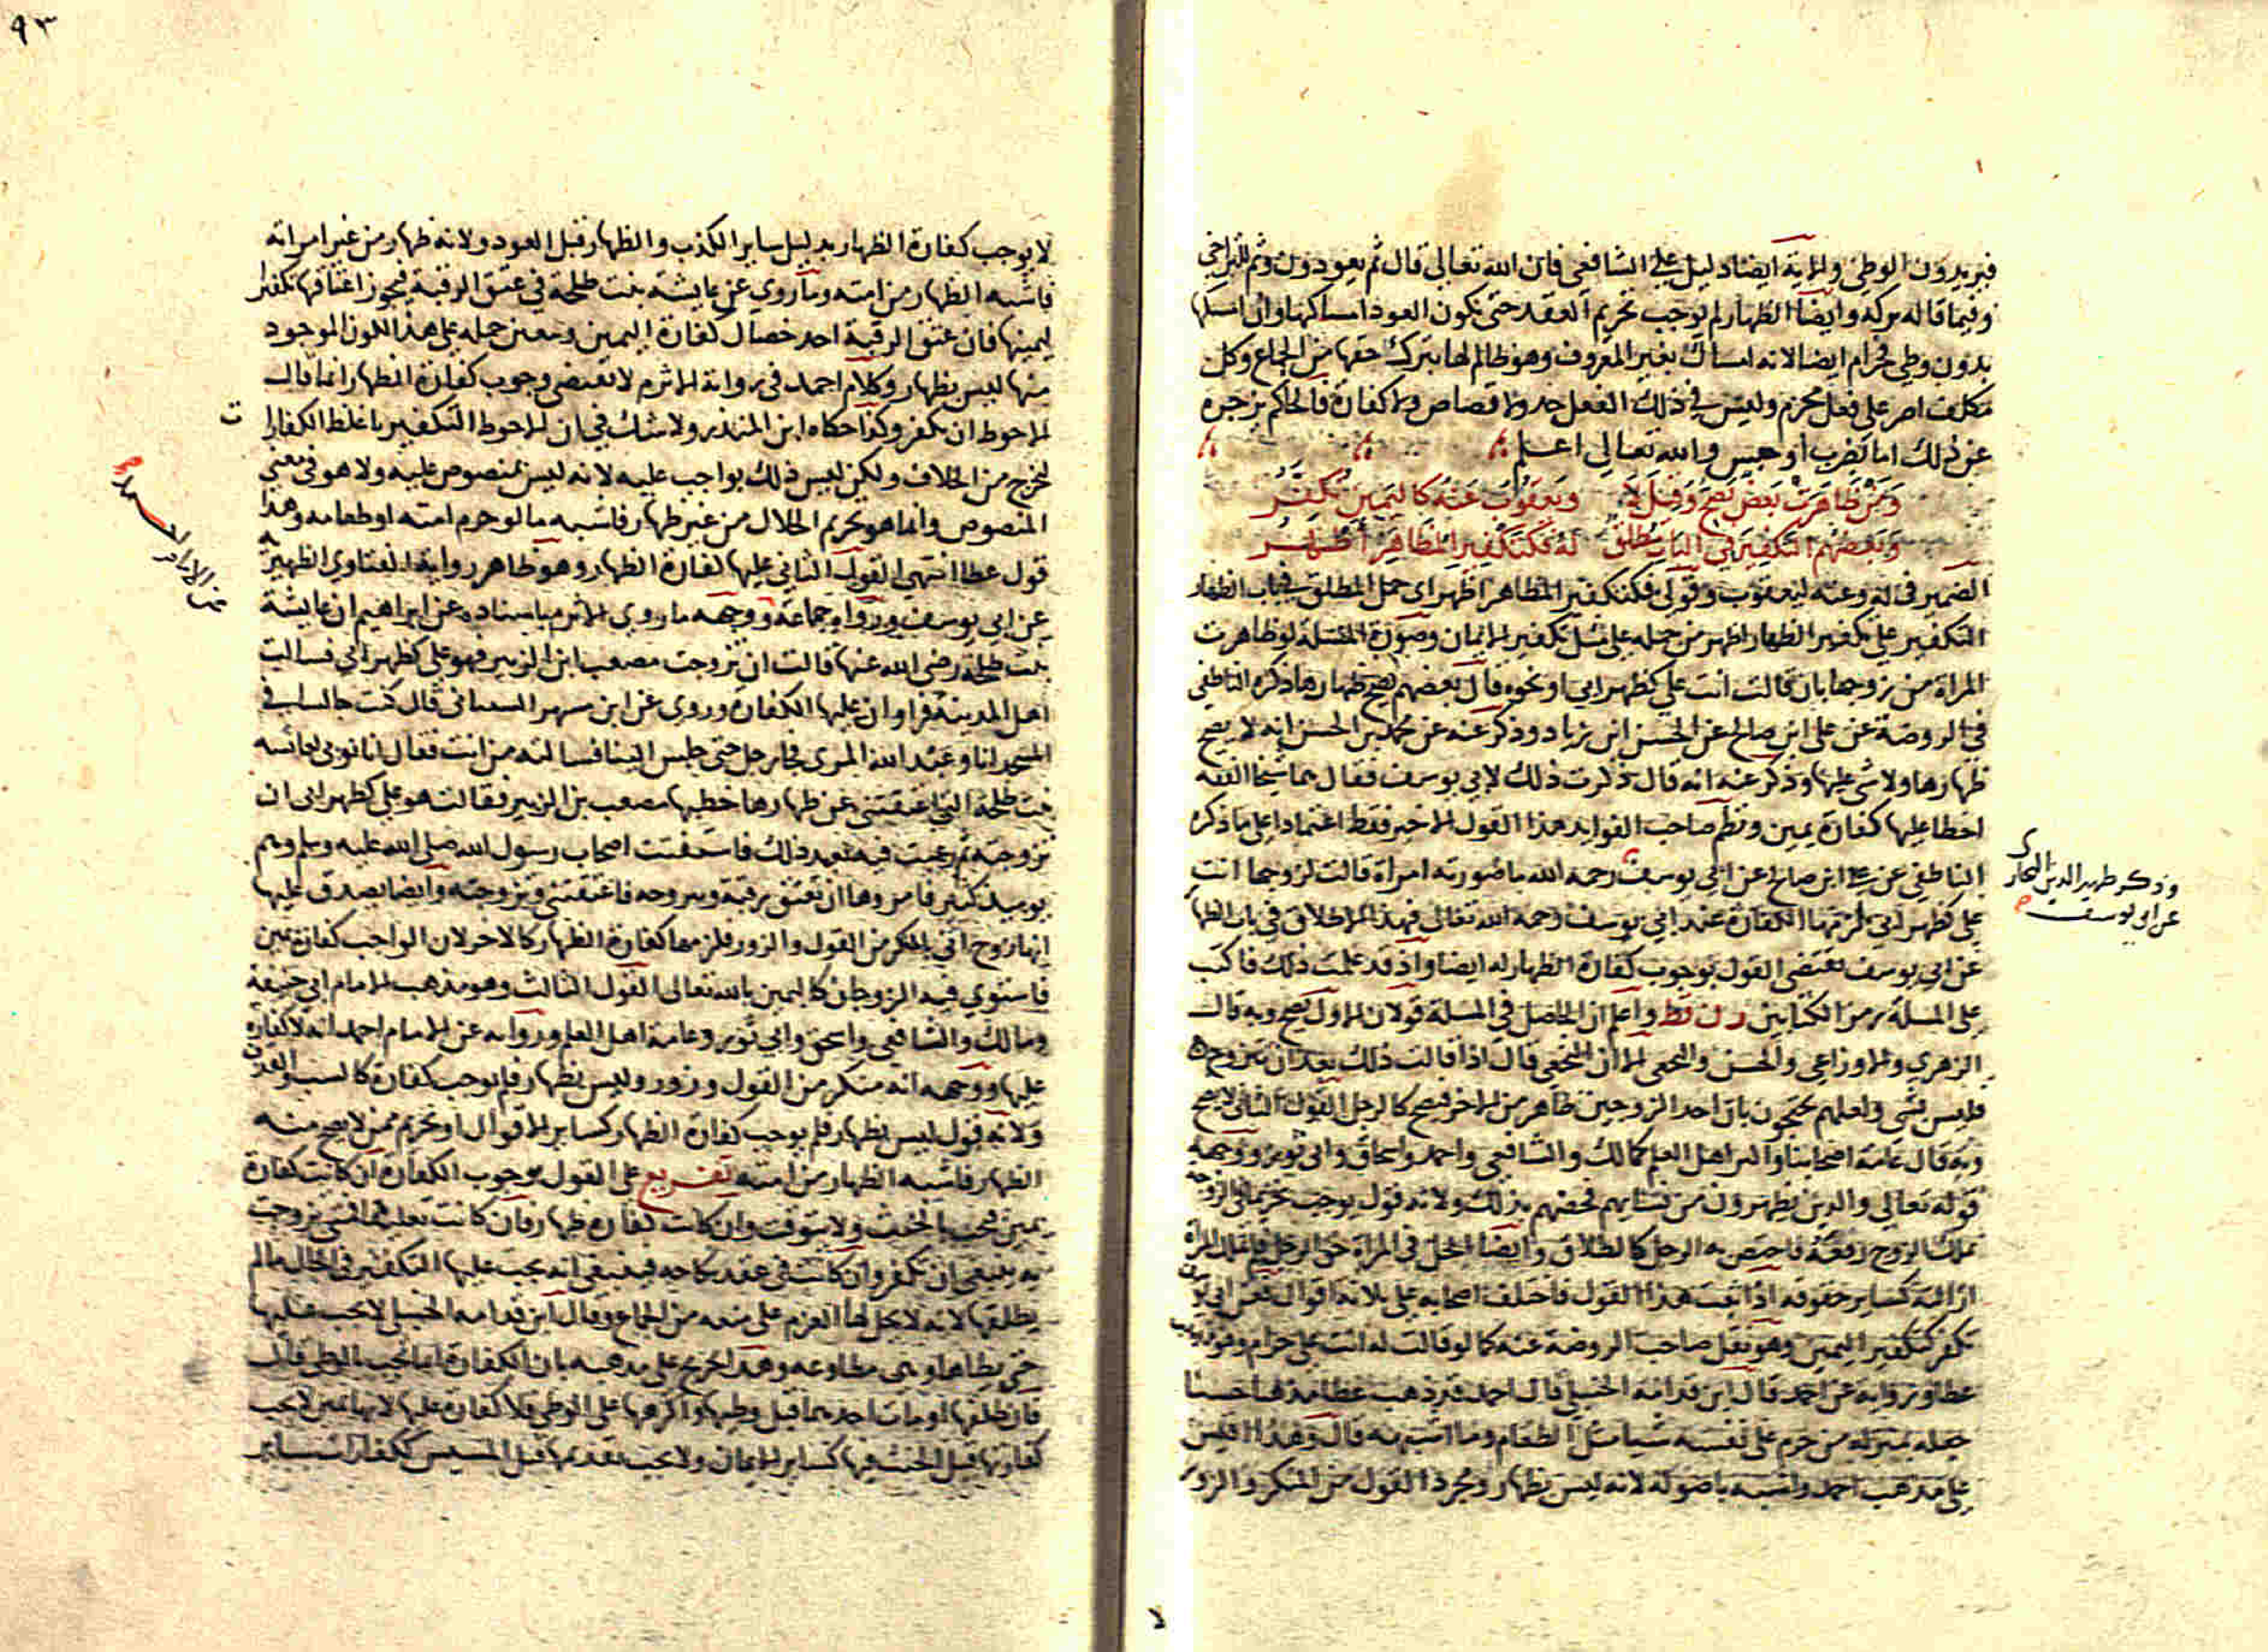 فيريدون الوطئ والاية ايضا دليل على الشافعي فان الله تعالى قال ثم يعودون وثم للتراخي
وفيما قاله تركه وايضا الظهار لم يوجب تحريم العقد حتى يكون العود امساكها وان امسكها
بدون وطئ فحرام ايضا لانه امساك بغير المعروف وهو ظالم لها بترك حقها من الجماع وكل
مكلف اصر على فعل محرم وليس في ذلك الفعل حد ولا قصاص ولا كفارة فالحاكم يزجره
عن ذلك اما بضرب او حبس والله تعالى اعلم
ومن ظاهرت بعض يصح وقيل لا ويعقوب عنه كاليمين تكفر
وبعضهم التكفير في الباب يطلق له فكتكفير المظاهر اظهر
الضمير في له وعنه ليعقوب وقولي فكتكفير المظاهر اظهر اي حمل المطلق في باب الظهار
التكفير على تكفير الظهار اظهر من حمله على مثل تكفير الايمان وصورة المسئلة لو ظاهرت
المراة من زوجها بان قالت انت علي كظهر ابي او نحوه قال بعضهم يصح ظهارها ذكره الناطفي
في الروضة عن علي ابن صالح عن الحسن ابن زياد وذكر عنه عن محمد بن الحسن انه لا يصح
ظهارها ولا شي عليها وذكر عنه انه قال ذكرت ذلك لابي يوسف فقال هما شيخا الفقه
اخطا عليها كفارة يمين ونظم صاحب الفوايد هذا القول الاخير فقط اعتمادا على ما ذكره
الناطفي عن علي ابن صالح عن ابي يوسف رحمه الله ما صورته امراة قالت لزوجها انت
علي كظهر ابي لزمتها الكفارة عند ابي يوسف رحمه الله تعالى فهذا الاطلاق في باب الظهار
وذكر ظهير الدين البخاري
عن ابي يوسف
عن ابي يوسف يقتضي القول بوجوب كفارة الظهار له ايضا واذ قد علمت ذلك فاكتب
على المسلة رمز الكتابين واعلم ان الحاصل في المسئلة قولان الاول يصح وبه قال
الزهري والاوزاعي والحسن والنخعي الا ان النخعي قال اذا قالت ذلك بعد ان تتزوج
فليس بشي ولعلهم يحتجون بان احد الزوجين ظاهر من الاخر فيصح كالرجل القول الثاني لا يصح
وبه قال عامة اصحابنا واكثر اهل العلم كمالك والشافعي واحمد واسحاق وابي ثور ووجهه
قوله تعالى والذين يظهرون من نسايهم فخصهم بذلك ولانه قول يوجب تحريما في الزوجة
يملك الزوج رفعه فاختص به الرجل كالطلاق وايضا الحل في المراة حق الرجل فلم تملك المراة
ازالته كساير حقوقه اذا ثبت هذا القول فاختلف اصحابه على ثلاثة اقوال فعن ابي يوسف
تكفر كتكفير اليمين وهو نقل صاحب الروضة عنه كما لو قالت له انت علي حرام وهو مذهب
عطا ورواية عن احمد قال ابن قدامة الحنبلي قال احمد قد ذهب عطا مذهبا حسنا
جعله بمنزلة من حرم على نفسه شيا مثل الطعام وما اشبهه قال وهذا اقيس
على مذهب احمد واشبه باصوله لانه ليس بظهار ومجرد القول من المنكر والزور
٩٣
لا يوجب كفارة الظهار بدليل ساير الكذب والظهار قبل العود ولانه ظهار من غير امراته
فاشبه الظهار من امته وما روي عن عايشة بنت طلحة في عتق الرقبة فيجوز اعتاقها تكفيرا
ليمينها فان عتق الرقبة احد خصال كفارة اليمين ويتعين حمله على هذا لكون الموجود
منها ليس بظهار وكلام احمد في رواية الاثرم لا يقتضي وجوب كفارة الظهار انما قال
الاحوط ان تكفر وكذا حكاه ابن المنذر ولا شك في ان الاحوط التكفير باغلظ الكفارات
ليخرج من الخلاف ولكن ليس ذلك بواجب عليه لانه ليس بمنصوص عليه ولا هو في معنى
المنصوص وانما هو تحريم الحلال من غير ظهار فاشبه ما لو حرم امته او طعامه وهذا
قول عطا انتهى القول الثاني عليها كفارة الظهار وهو ظاهر رواية الفتاوى الظهيرية
عن ابي يوسف ورواه جماعة ووجهه ما روى الاثرم باسناده عن ابراهيم ان عايشة
بنت طلحة رضي الله عنها قالت ان تزوجت مصعب ابن الزبير فهو علي كظهر ابي فسالت
اهل المدينة فراوا ان عليها الكفارة وروى عن ابن مسهر الشيباني قال كنت جالسا في
المسجد انا وعبد الله المزني فجا رجل حتى جلس الينا فسالته من انت فقال انا مولى لعائشة
بنت طلحة التي اعتقتني عن ظهارها خطبها مصعب بن الزبير فقالت هو علي كظهر ابي ان
تزوجته ثم رغبت فيه بعد ذلك فاستفتت اصحاب رسول الله صلى الله عليه وسلم وهم
يوميذ كثير فامروها ان تعتق رقبة وتتزوجه فاعتقتني وتزوجته وايضا يصدق عليها
انها زوج اتى بالمنكر من القول والزور فلزمها كفارة الظهار كالاخر لان الواجب كفارة يمين
فاستوي فيه الزوجان كاليمين بالله تعالى القول الثالث وهو مذهب الامام ابي حنيفة
ومالك والشافعي واسحق وابي ثور وعامة اهل العلم ورواية عن الامام احمد انه لا كفارة
عليها ووجهه انه منكر من القول وزور وليس بظهار فلم يوجب كفارة كالسب والقذف
ولانه قول ليس بظهار فلم يوجب كفارة الظهار كساير الاقوال او تحريم ممن لا يصح منه
الظهار فاشبه الظهار من امته تفريع على القول بوجوب الكفارة ان كانت كفارة
يمين فتجب بالحنث ولا يتوقت وان كانت كفارة ظهار فان كانت تعليقا فمتى تزوجت
به ينبغي ان تكفر وان كانت في عقد نكاحه فينبغي انه يجب عليها التكفير في الحال ما لم
يطلقها لانه لا يحل لها العزم على منعه من الجماع وقال ابن قدامة الحنبلي لا يجب عليها
حتى يطاها وهي مطاوعة وهذا تخريج على مذهبه بان الكفارة انما تجب بالوطئ قال
فان طلقها او مات احدهما قبل وطيها او اكرهها على الوطئ فلا كفارة عليها لانها يمين لا يجب
كفارتها قبل الحنث فيها كساير الايمان ولا يجب تقديمها قبل المسيس ككفارات ساير